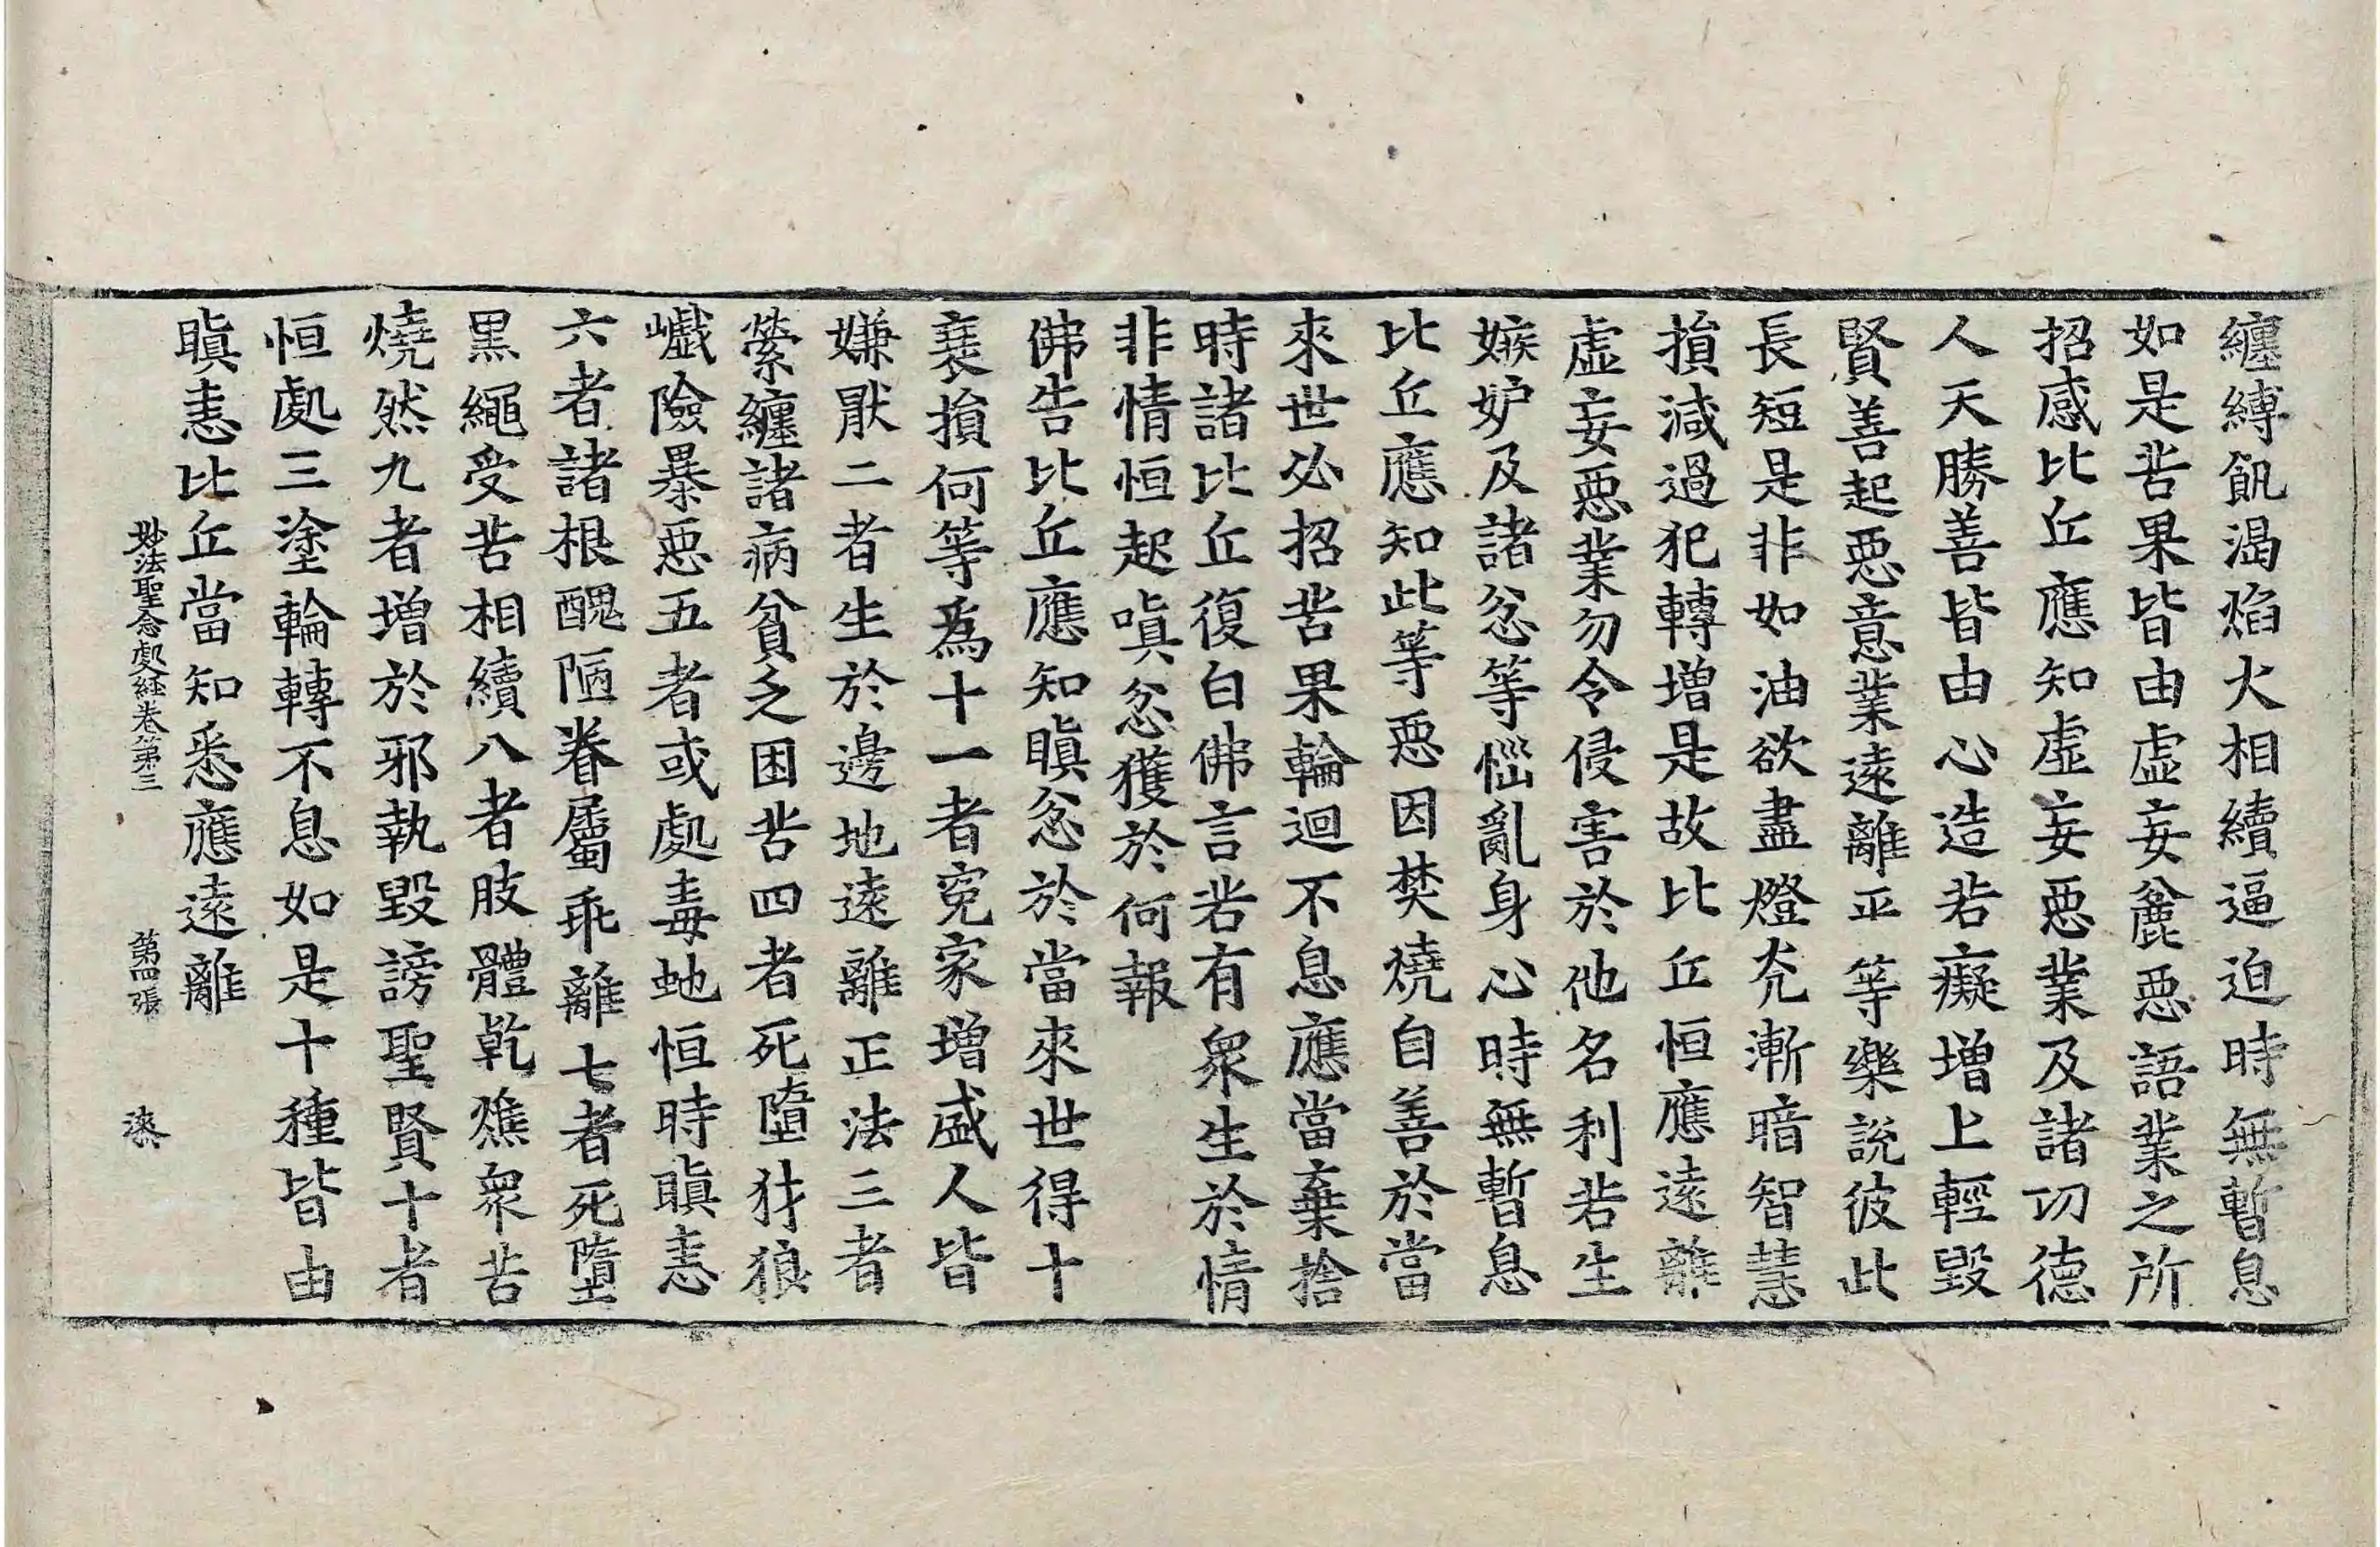 纏縛飢渴焰火相續逼迫時無暫息
如是苦果皆由虛妄麁惡語業之所
招感比丘應知虛妄惡業及諸功德
人天勝善皆由心造若癡增上輕毀
賢善起惡意業遠離平等樂說彼此
長短是非如油欲盡燈光漸暗智慧
損減過犯轉增是故比丘恒應遠離
虛妄惡業勿令侵害於他名利若生
嫉妒及諸忿等惱亂身心時無暫息
比丘應知此等惡因焚燒自善於當
來世必招苦果輪迴不息應當棄捨
時諸比丘復白佛言若有衆生於情
非情恒起嗔忿獲於何報
佛告比丘應知瞋忿於當來世得十
衰損何等為十一者寃家增盛人皆
嫌厭二者生於邊地遠離正法三者
縈纏諸病貧乏困苦四者死墮犲狼
巇險暴惡五者或處毒虵恒時瞋恚
六者諸根醜陋眷屬乖離七者死墮
黑繩受苦相續八者肢體乾燋衆苦
燒然九者增於邪執毀謗聖賢十者
恒處三塗輪轉不息如是十種皆由
瞋恚比丘當知悉應遠離
妙法聖念處經卷第三 第四張